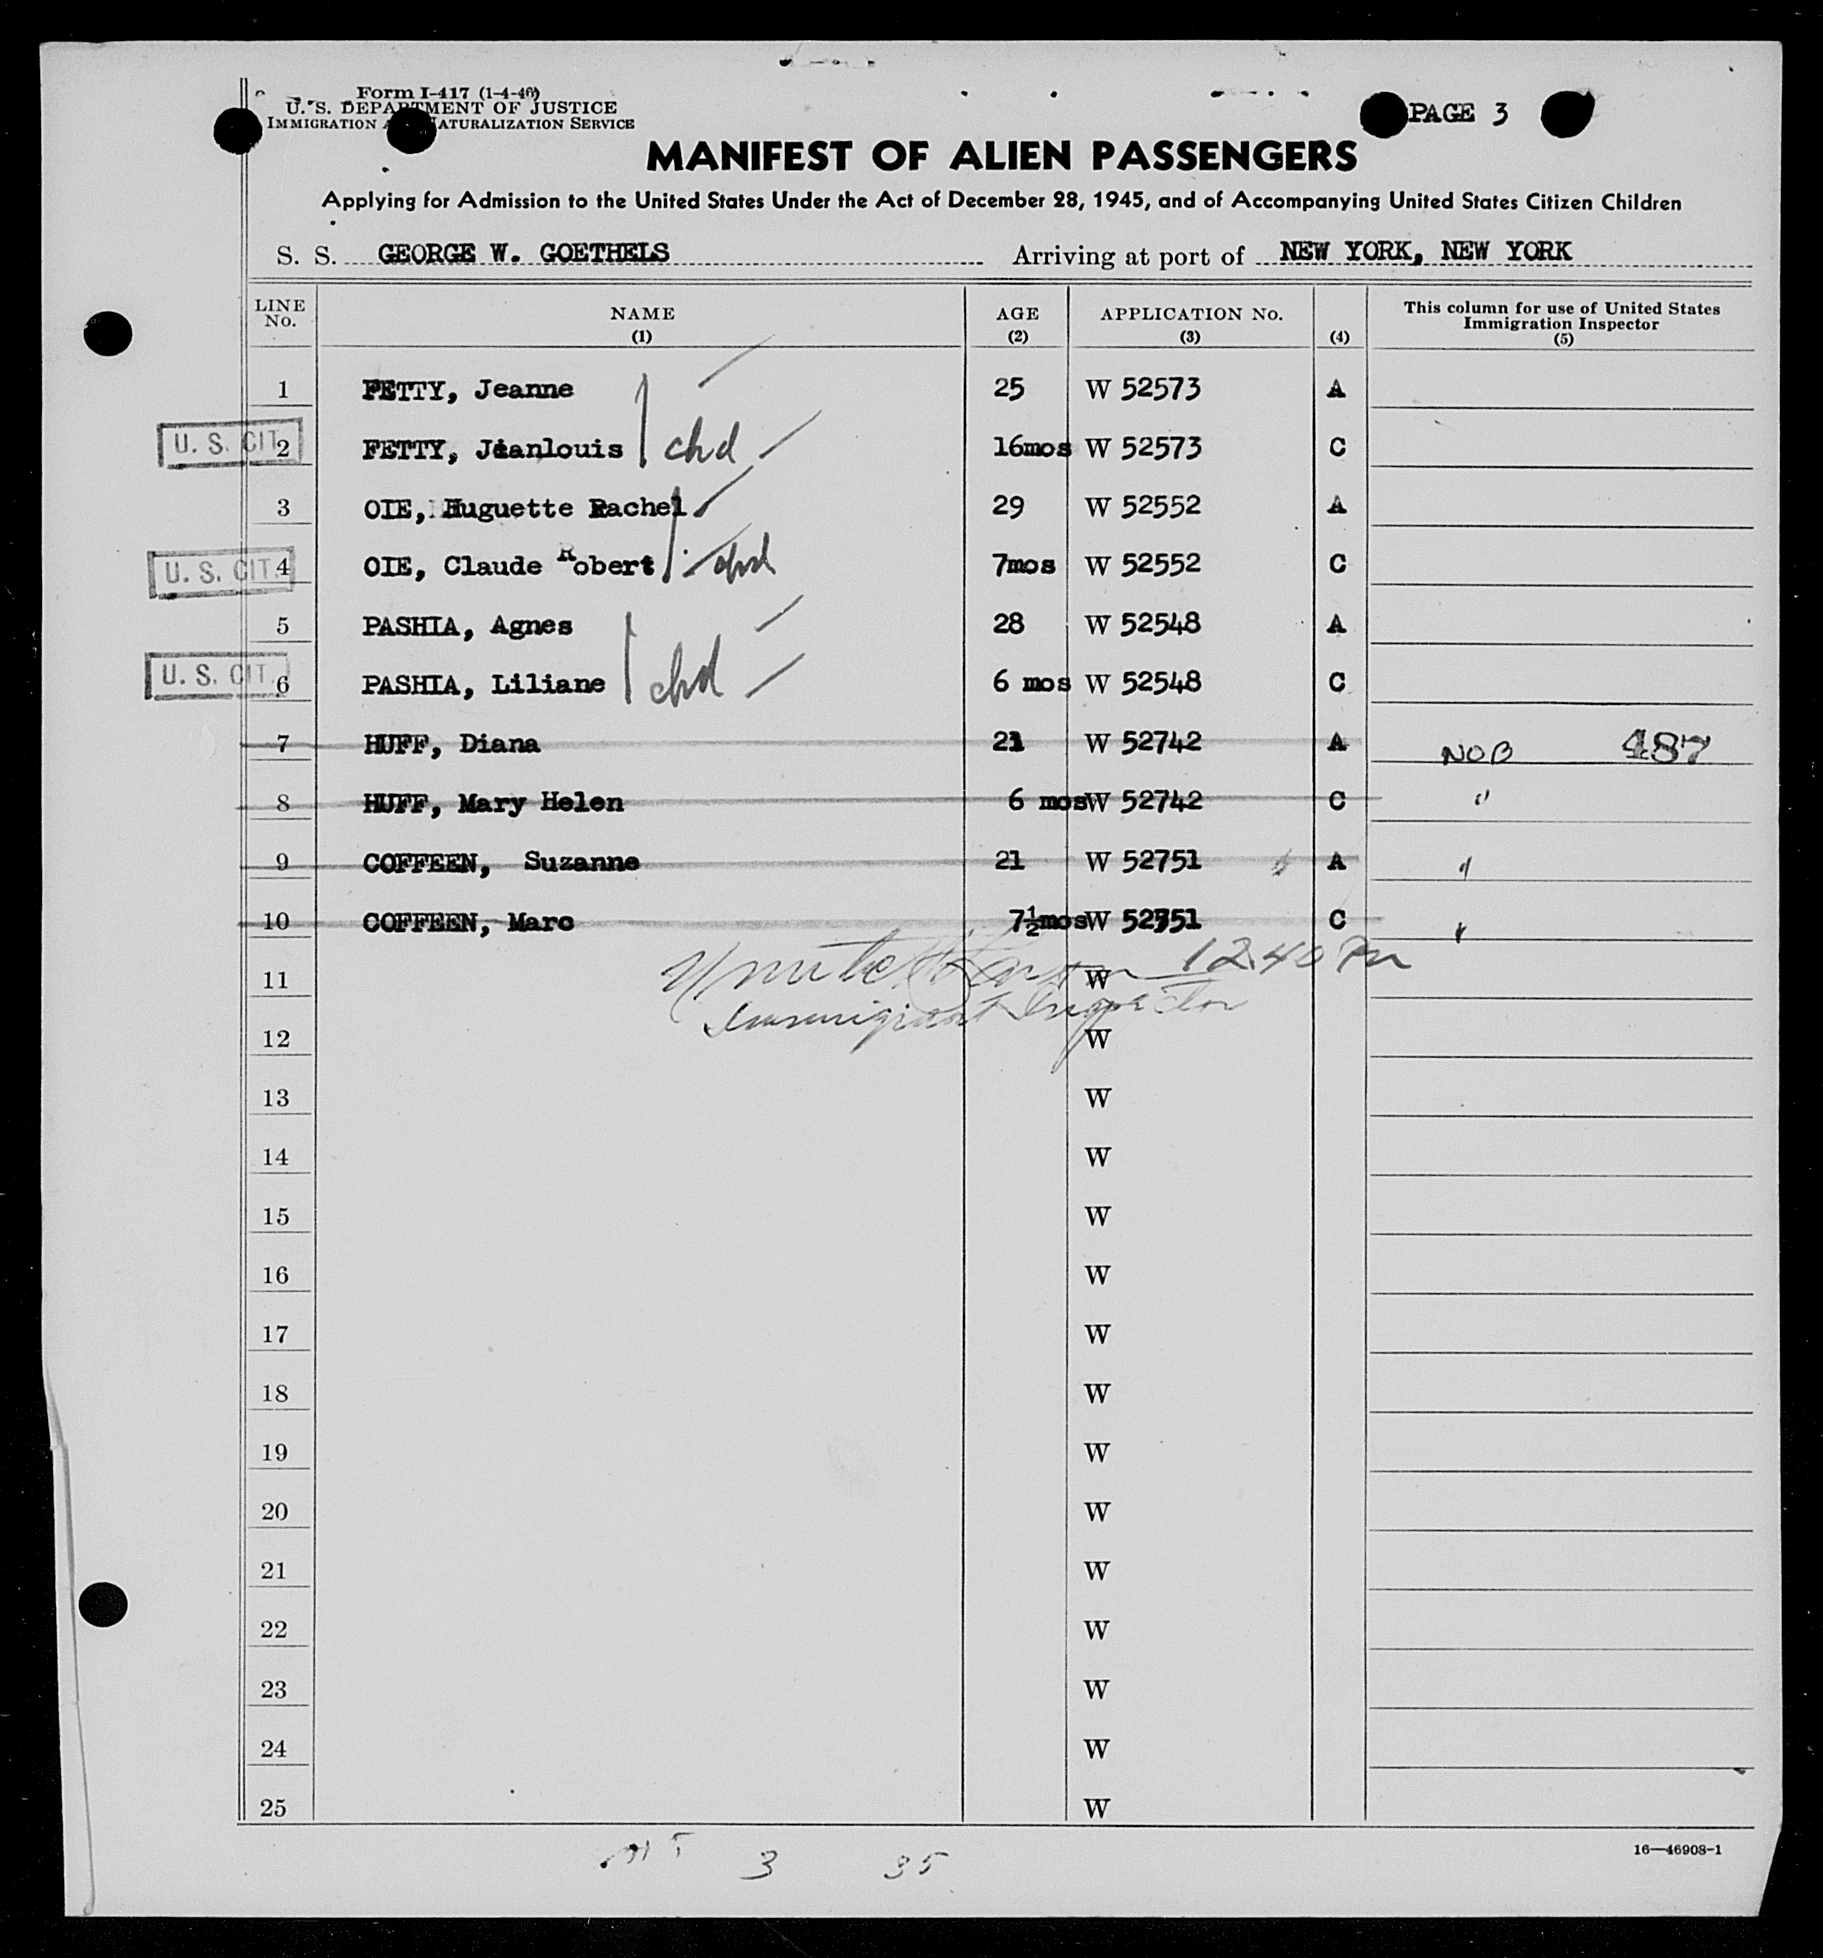 Form I-417 (1-4-46)
U. S. DEPARTMENT OF JUSTICE
IMMIGRATION AND NATURALIZATION SERVICE
PAGE 3
MANIFEST OF ALIEN PASSENGERS
Applying for Admission to the United States Under the Act of December 28, 1945, and of Accompanying United States Citizen Children
S. S. GEORGE W. GOETHELS Arriving at port of NEW YORK, NEW YORK
LINE No. NAME (1) AGE (2) APPLICATION No. (3) (4) This column for use of United States Immigration Inspector (5)
1 FETTY, Jeanne 25 W 52573 A
U. S. CIT. 2 FETTY, Jeanlouis chd 16mos W 52573 C
3 OIE, Huguette Rachel 29 W 52552 A
U. S. CIT. 4 OIE, Claude Robert chd 7mos W 52552 C
5 PASHIA, Agnes 28 W 52548 A
U. S. CIT. 6 PASHIA, Liliane chd 6 mos W 52548 C
7 HUFF, Diana 21 W 52742 A NOB 487
8 HUFF, Mary Helen 6 mos W 52742 C "
9 COFFEEN, Suzanne 21 W 52751 A "
10 COFFEEN, Marc 7½mos W 52751 C "
11 W 12.40 Pm
Immigrant Inspector
12 W
13 W
14 W
15 W
16 W
17 W
18 W
19 W
20 W
21 W
22 W
23 W
24 W
25 W
16—46908-1
3 35